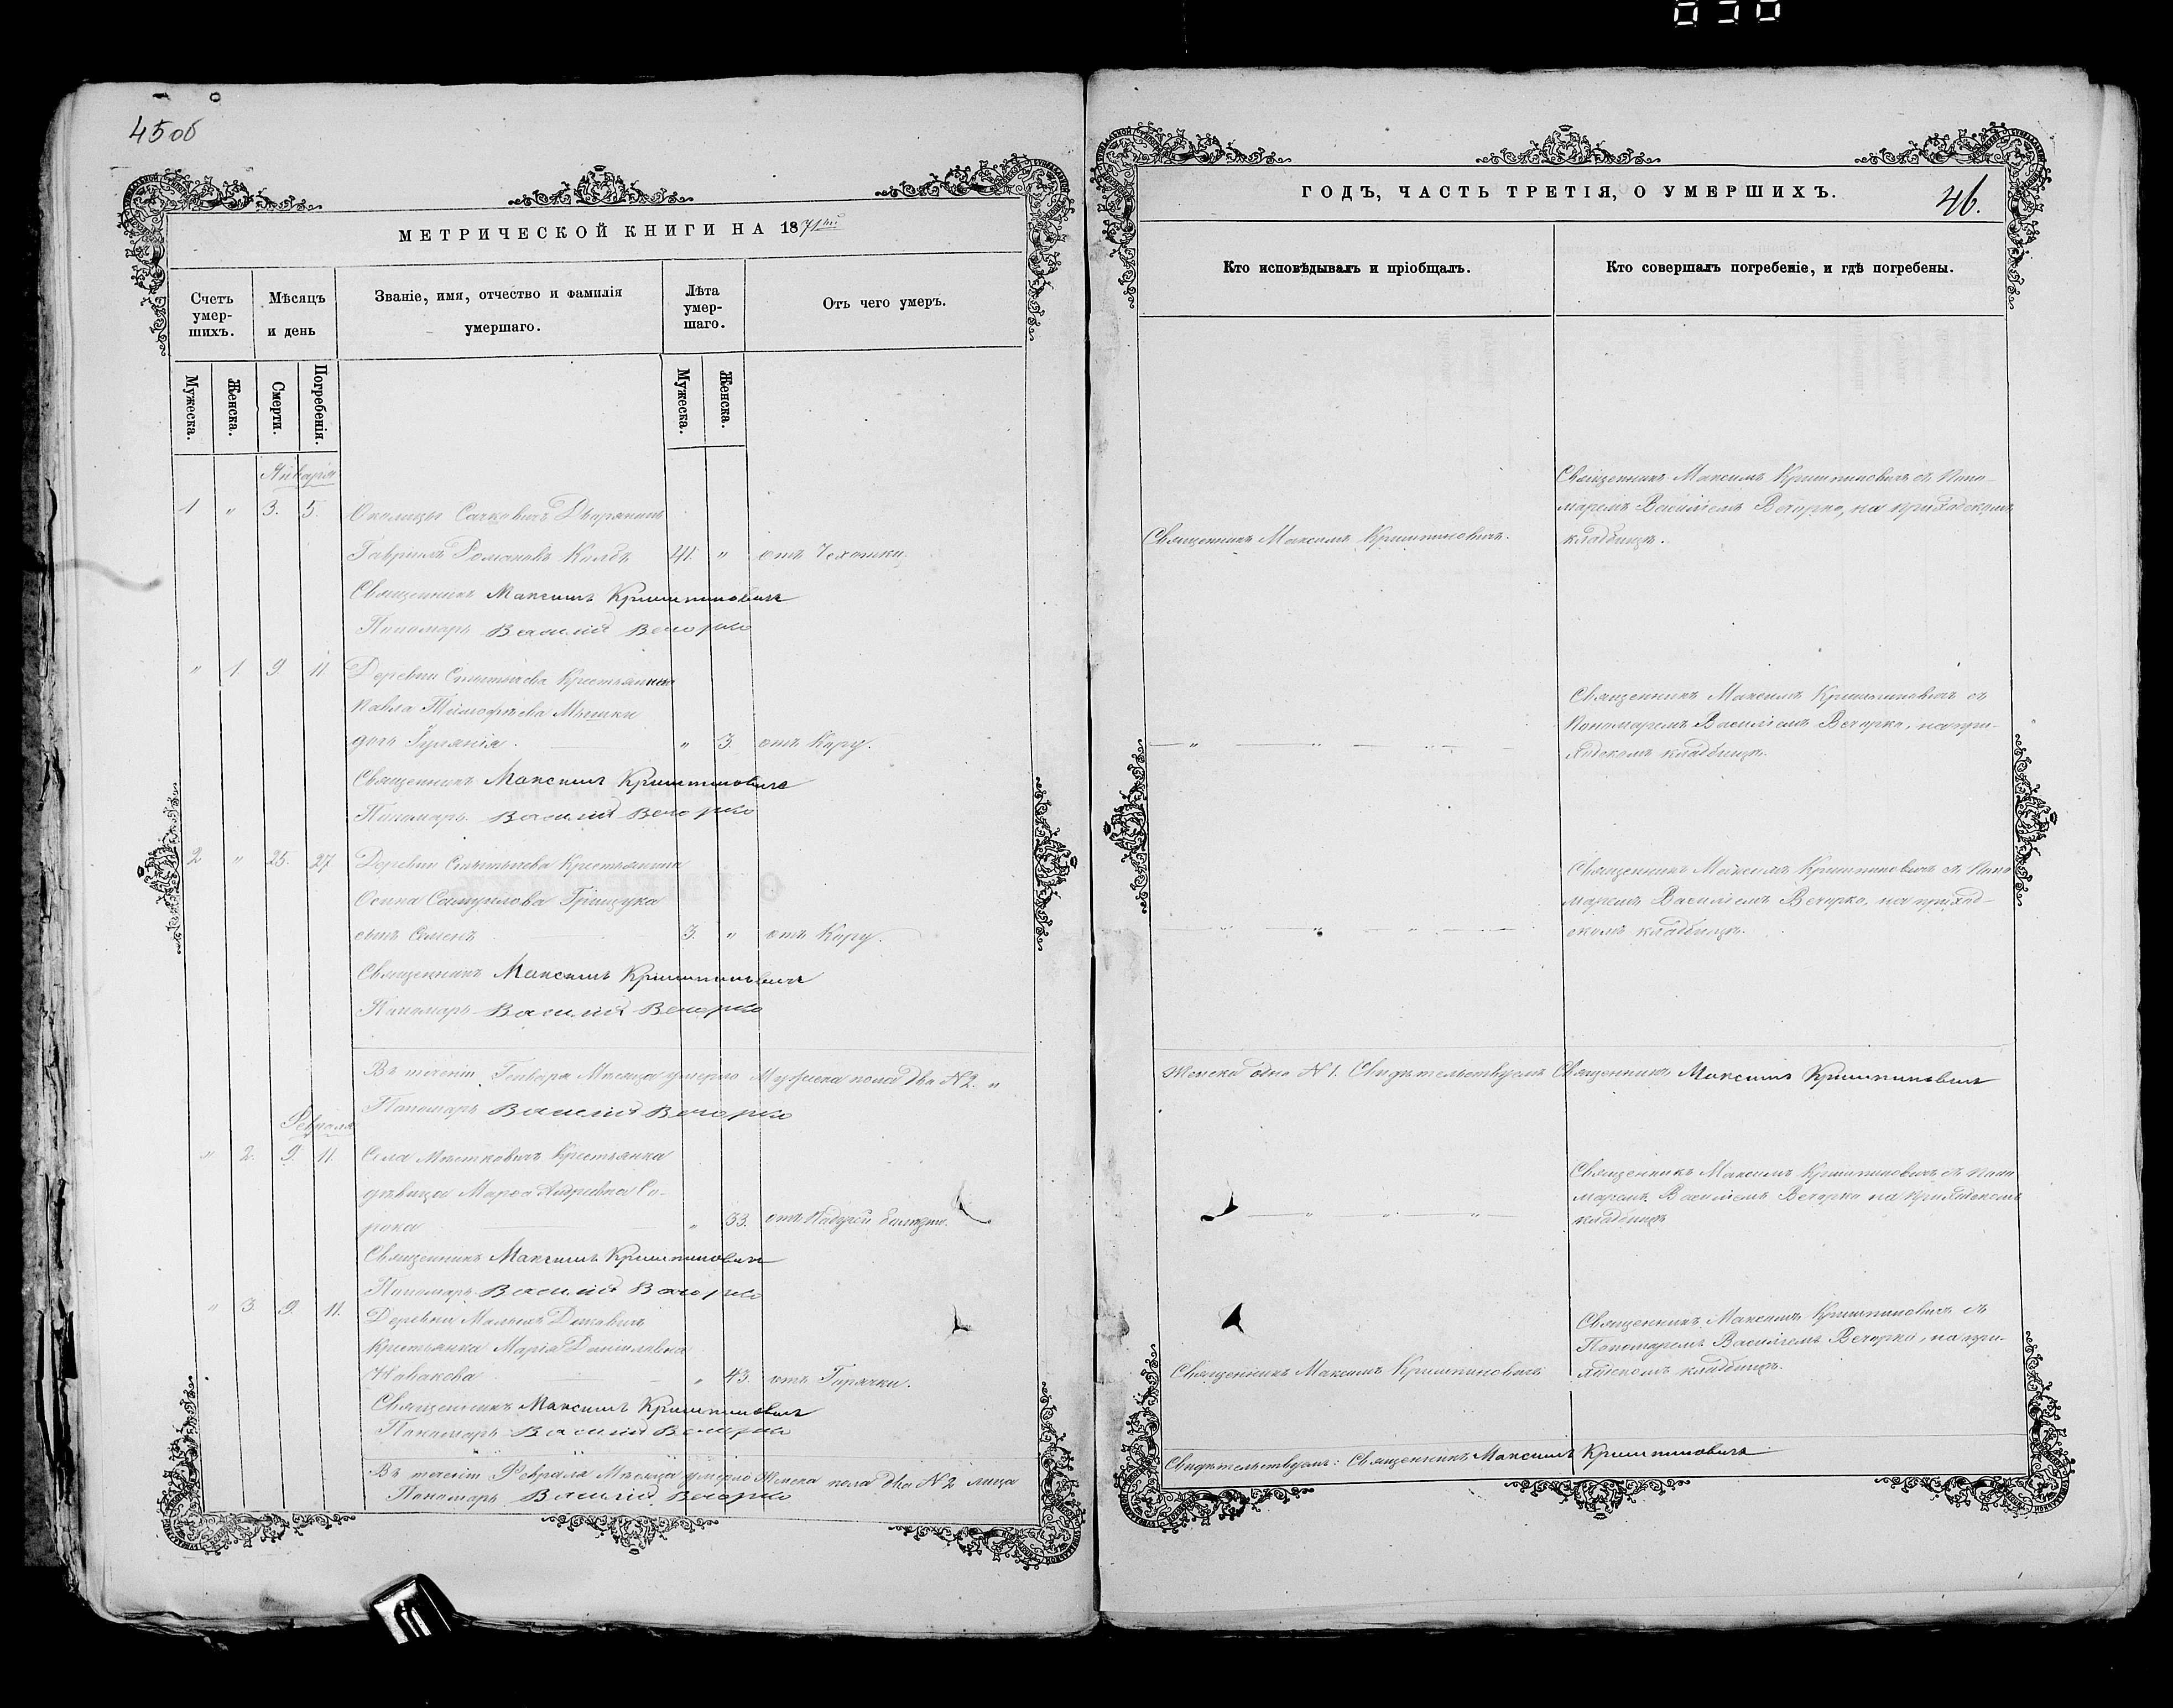 45 об
МЕТРИЧЕСКОЙ КНИГИ НА 1871й
Счетъ умер-шихъ.
Мѣсяцъ и день
Званіе, имя, отчество и фамилія умершаго.
Лѣта умер-шаго.
Отъ чего умеръ.
Мужеска.
Женска.
Смерти.
Погребенія.
Мужеска.
Женска.
Января
1 " 3. 5. Околицы Дворянинъ
Гавріилъ Романовъ 41. " отъ Чахотки.
Священникъ Максимъ Криштиновичъ
Пономарь Василий Вечорко
" 1. 9. 11. Деревни Крестьянина
Павла Тимофѣева Мышки
дочь " 3. отъ Кору.
Священникъ Максимъ Криштиновичъ
Пономарь Василий Вечорко
2 " 25. 27. Деревни Крестьянина
Осипа Самуилова Грищука
сынъ Семенъ 3. " отъ Кору.
Священникъ Максимъ Криштиновичъ
Пономарь Василий Вечорко
Въ теченіи Генваря Мѣсяца умерло Мужеска пола два №2. "
Пономарь Василий Вечорко
Февраля
" 2. 9. 11. Села Крестьянка
дѣвица Марѳа Андреева Со-
рока " 33. отъ болѣзни.
Священникъ Максимъ Криштиновичъ
Пономарь Василий Вечорко
" 3. 9. 11. Деревни Малыхъ
Крестьянка Марія Данилевна
" 43. отъ Горячки.
Священникъ Максимъ Криштиновичъ
Пономарь Василий Вечорко
Въ теченіи Февраля Мѣсяца умерло Женска пола два №2 лица
Пономарь Василий Вечорко
ГОДЪ, ЧАСТЬ ТРЕТІЯ, О УМЕРШИХЪ.
46.
Кто исповѣдывалъ и пріобщалъ.
Кто совершалъ погребеніе, и гдѣ погребены.
Священникъ Максимъ Криштиновичъ съ Поно-
маремъ Василіемъ Вечорко, на приходскомъ
Священникъ Максимъ Криштиновичъ. кладбищѣ.
Священникъ Максимъ Криштиновичъ съ
Пономаремъ Василіемъ Вечорко, на при-
— " — " — " — ходскомъ кладбищѣ.
Священникъ Максимъ Криштиновичъ съ Поно
маремъ Василіемъ Вечорко, на приход-
— " — " — " — скомъ кладбищѣ.
Женска одна №1. Свидѣтельствуемъ Священникъ Максимъ Криштиновичъ
Священникъ Максимъ Криштиновичъ съ Поно
маремъ Василіемъ Вечорко на приходскомъ
— " — " — " — кладбищѣ
Священникъ Максимъ Криштиновичъ съ
Пономаремъ Василіемъ Вечорко, на при-
Священникъ Максимъ Криштиновичъ ходскомъ кладбищѣ.
Свидѣтельствуемъ: Священникъ Максимъ Криштиновичъ